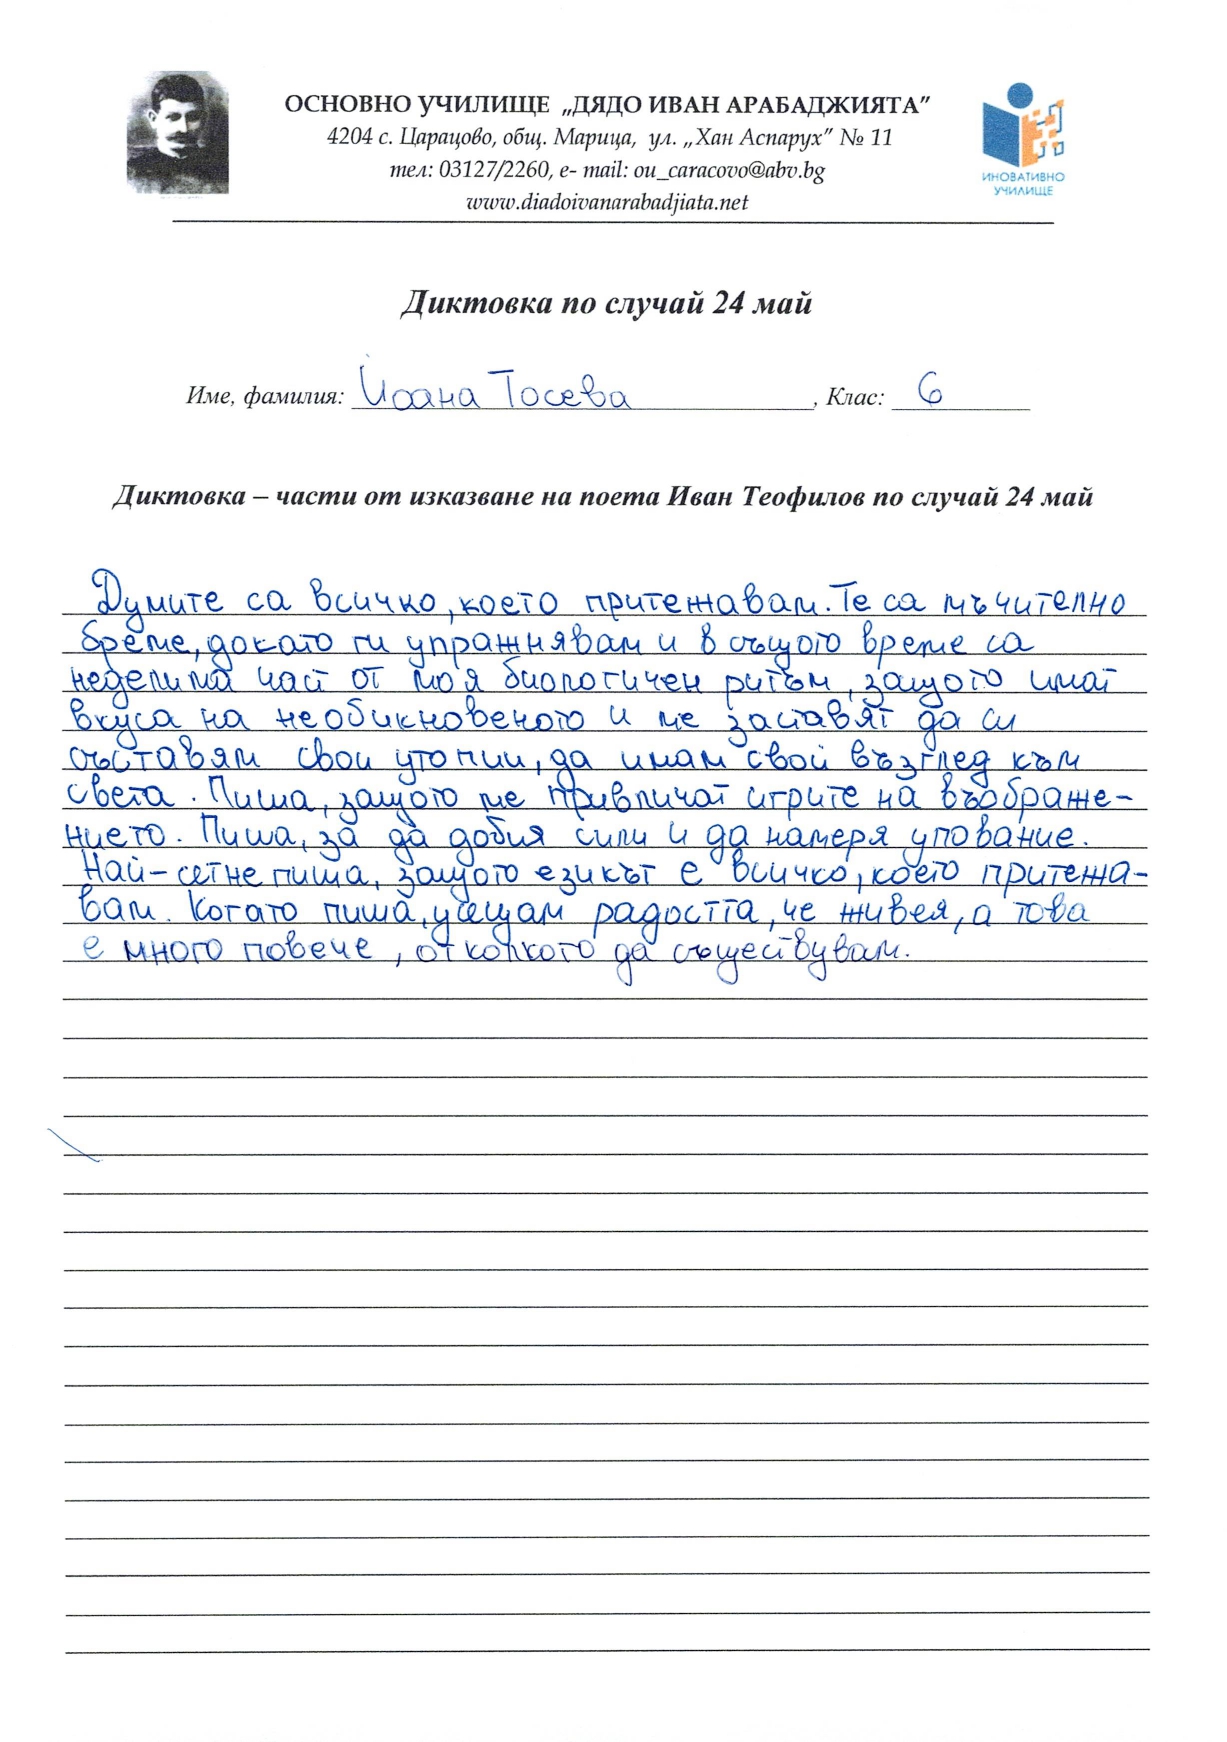 ОСНОВНО УЧИЛИЩЕ „ДЯДО ИВАН АРАБАДЖИЯТА”
4204 с. Царацово, общ. Марица, ул. „Хан Аспарух” № 11
тел: 03127/2260, е- mail: ou_caracovo@abv.bg
www.diadoivanarabadjiata.net
ИНОВАТИВНО
УЧИЛИЩЕ
Диктовка по случай 24 май
Име, фамилия: Йоана Тосева, Клас: 6
Диктовка – части от изказване на поета Иван Теофилов по случай 24 май
Думите са всичко, което притежавам. Те са мъчително
бреме, докато ги упражнявам и в същото време са
неделима част от моя биологичен ритъм, защото имат
вкуса на необикновеното и ме заставят да си
съставям свои утопии, да имам свой възглед към
света. Пиша, защото ме привличат игрите на въображе-
нието. Пиша, за да добия сили и да намеря упование.
Най-сетне пиша, защото езикът е всичко, което притежа-
вам. Когато пиша, усещам радостта, че живея, а това
е много повече, отколкото да съществувам.